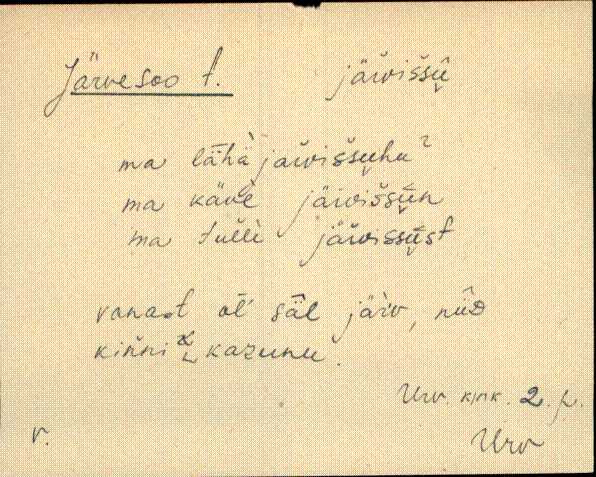 Järvesoo t. järvissū
ma lähä järvissuhu
ma käve järvissūn
ma tulli järvissūst
vanast ol' säl järv, nüd
kinni kazunu.
Urv. kmk. 2. p.
v. Urv